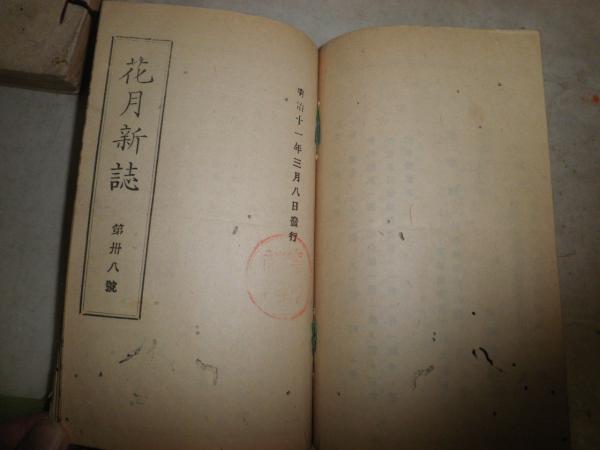 明治十一年三月八日發行
花月新誌
第卅八號